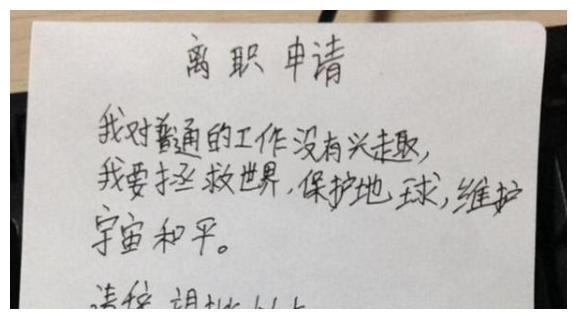 离职申请
我对普通的工作没有兴趣,
我要拯救世界,保护地球,维护
宇宙和平。
请辞,望批